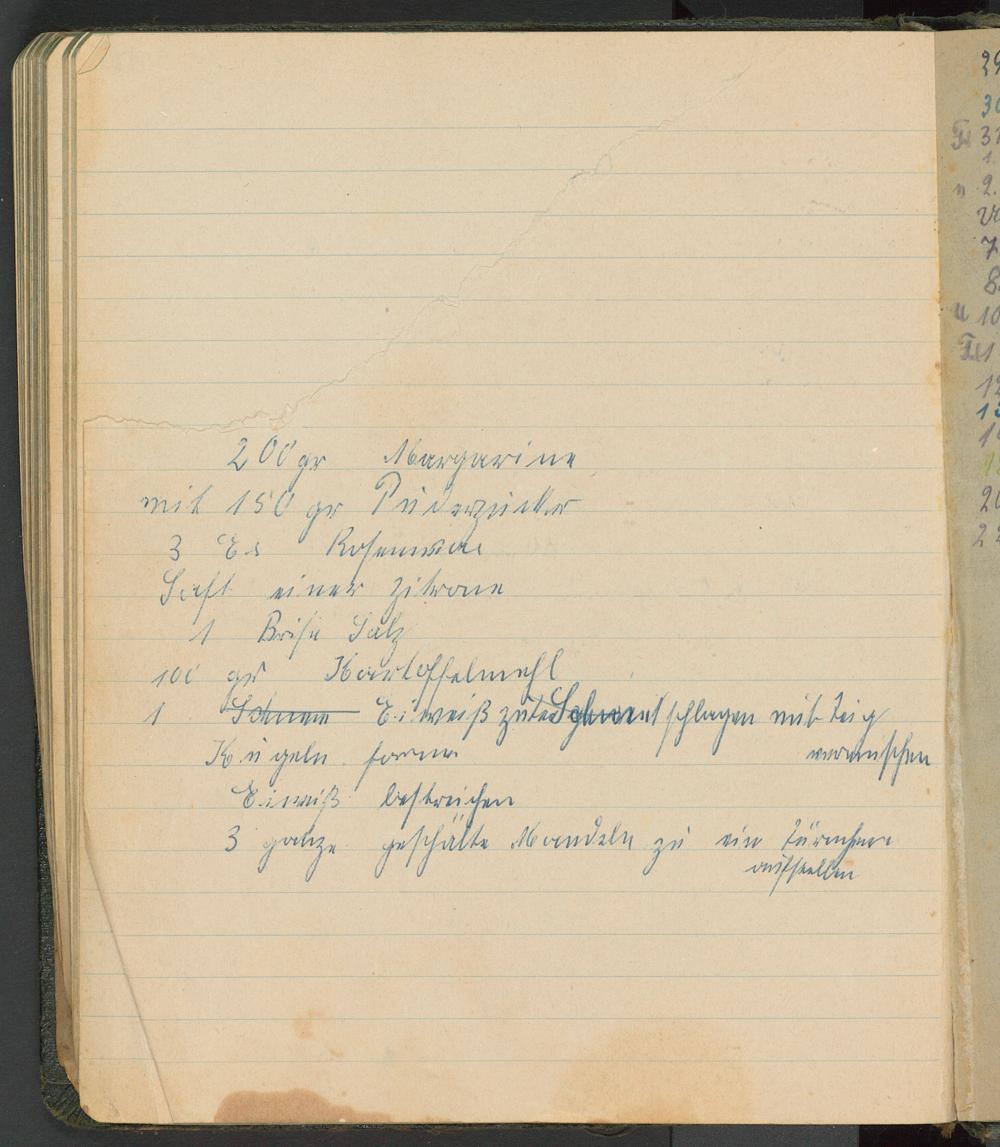 200 gr Margarine
mit 150 gr Puderzucker
3 Esl Rosenwa
Saft einer Zitrone
1 Brise Salz
100 gr Kartoffelmehl
1 Schnee Eiweiß zu schlagen mit Teig
vermischen
Kugeln formen
Eiweiß bestreichen
3 ganze geschälte Mandeln zu ein Türmchen
aufstellen
29
30
31
1
2.
7
8
10
1
20